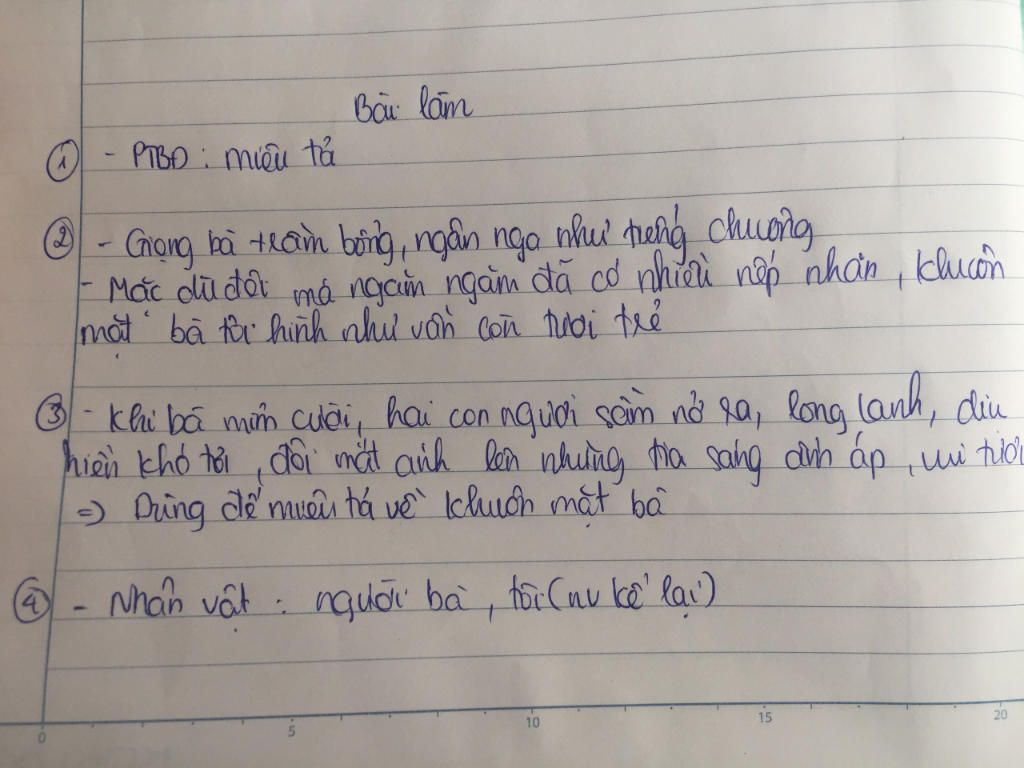 Bài làm
① - PTBĐ : miêu tả
② - Giọng bà trầm bổng, ngân nga như tiếng chuông
- Mặc dù đôi má ngăm ngăm đã có nhiều nếp nhăn, khuôn
mặt bà tôi hình như vẫn còn tươi trẻ
③ - Khi bà mỉm cười, hai con ngươi sẫm nở ra, long lanh, dịu
hiền khó tả, đôi mắt ánh lên những tia sáng ấm áp, vui tươi
=> Dùng để miêu tả về khuôn mặt bà
④ - Nhân vật : người bà, tôi (nv kể lại)
0 5 10 15 20